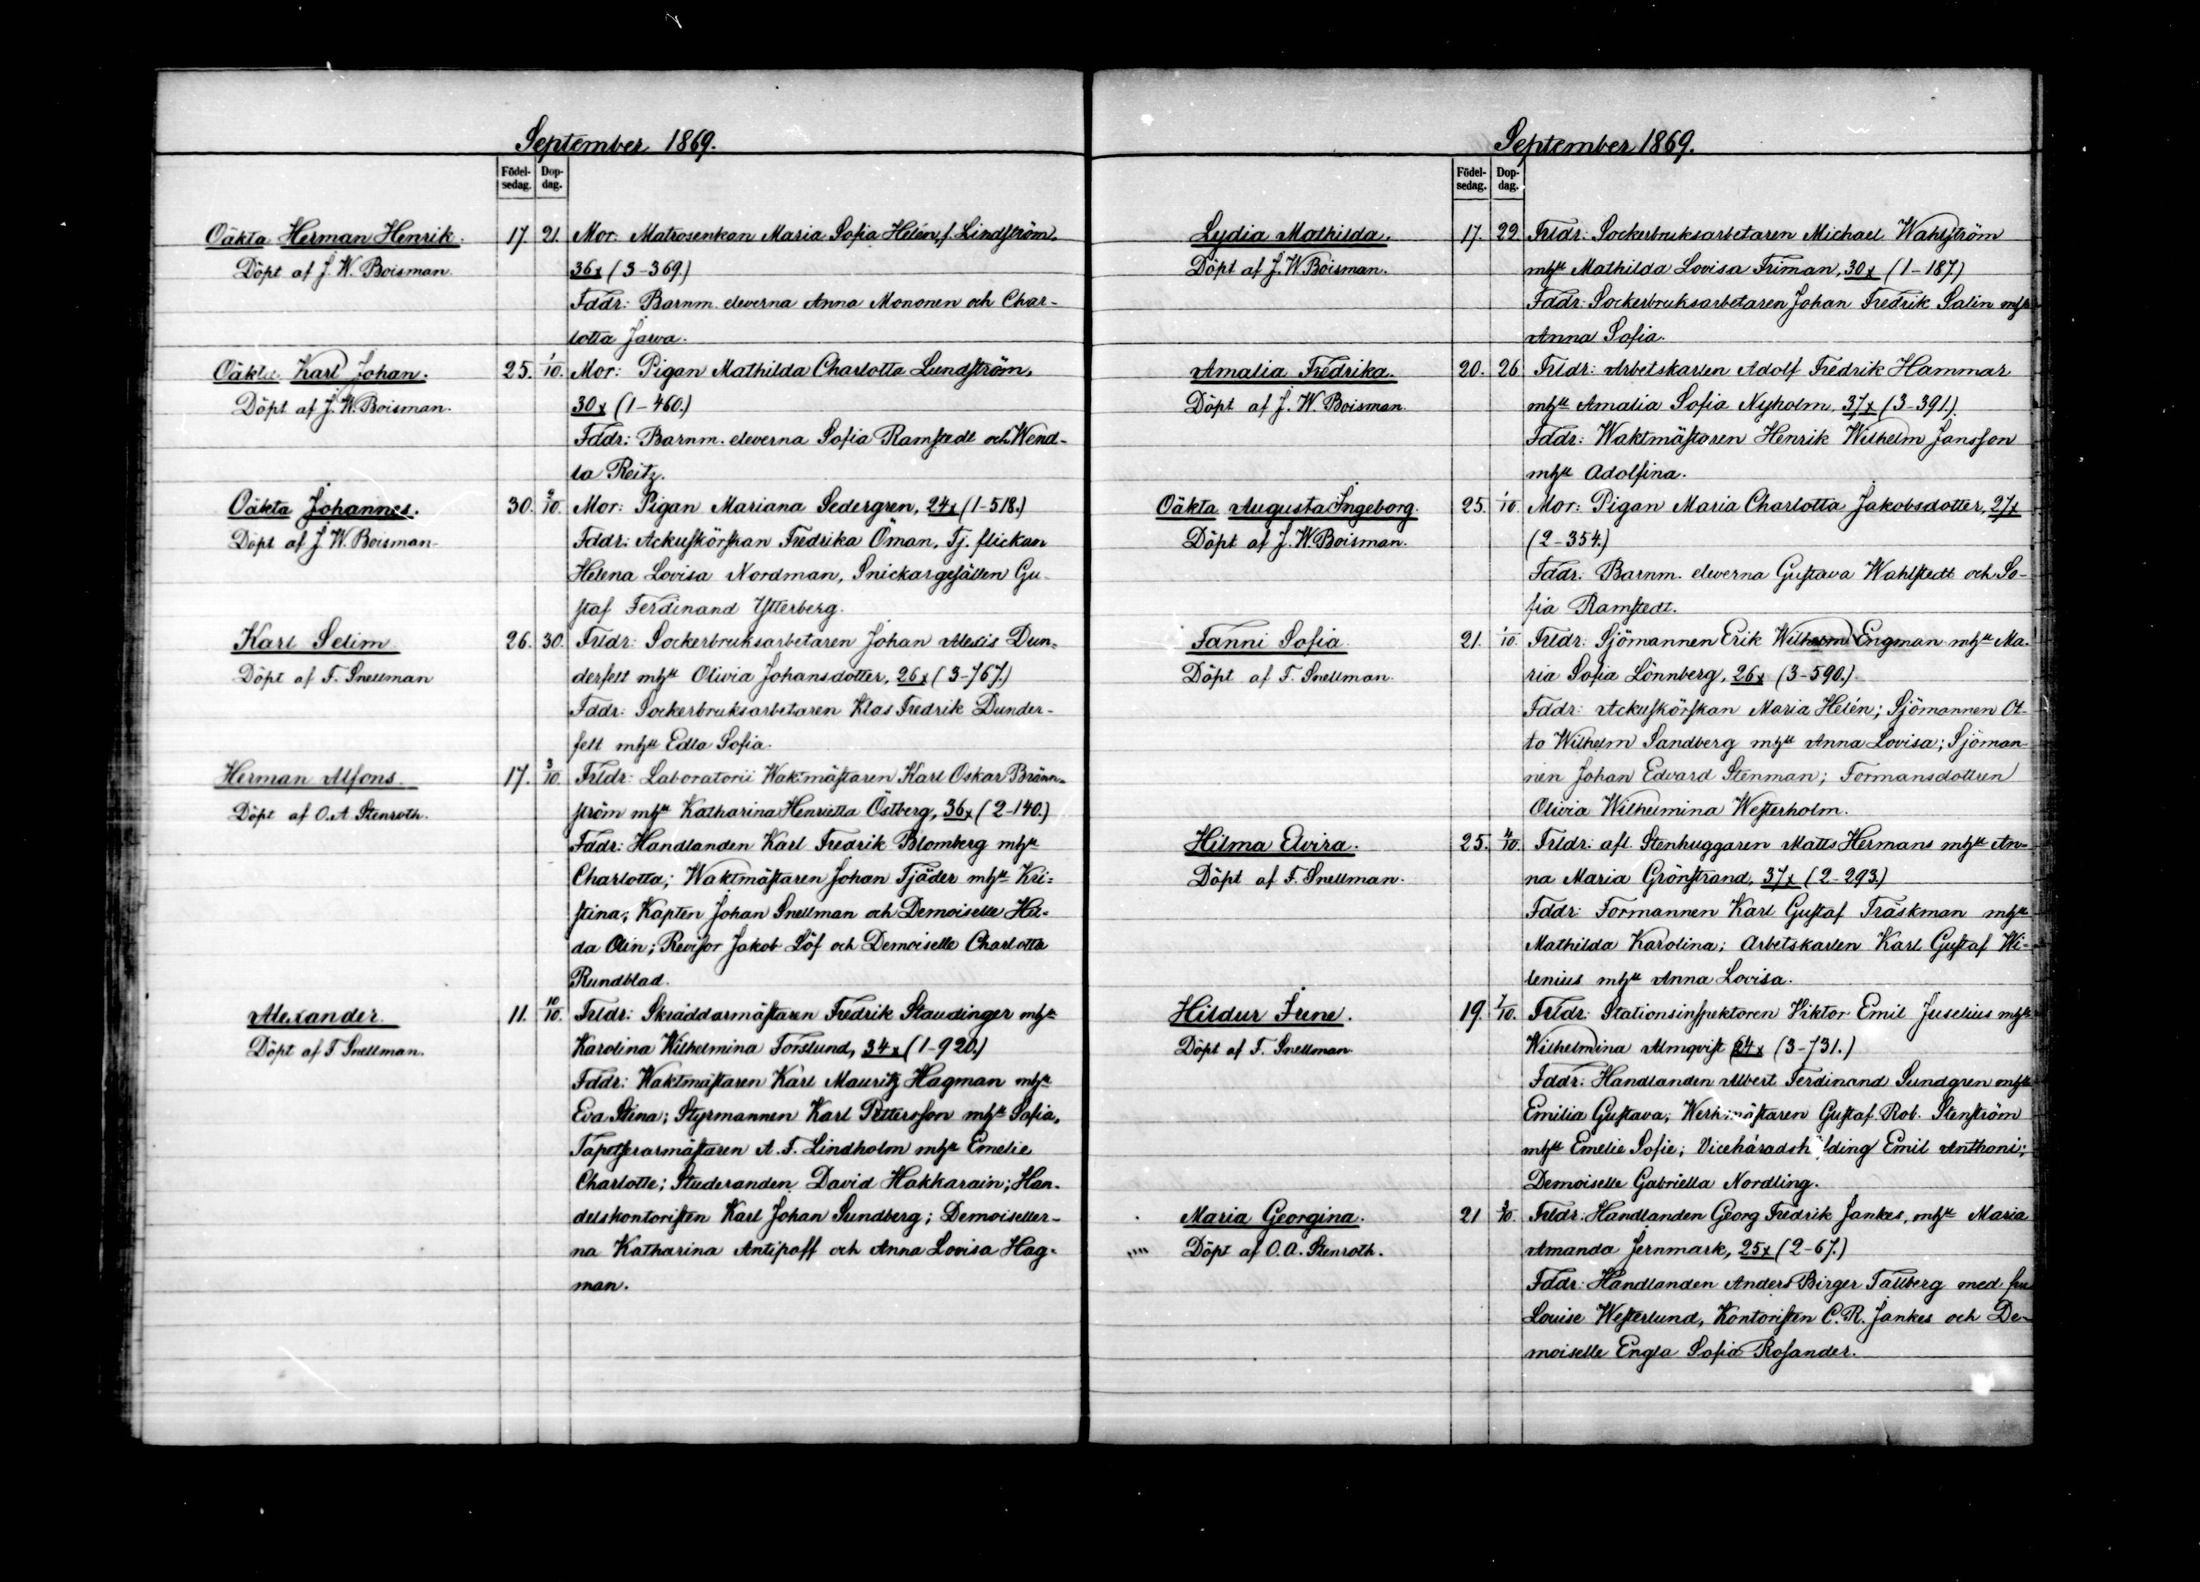 September 1869.
Födel-
sedag.
Dop-
dag.
Oäkta Herman Henrik. 17. 21. Mor: Matrosenkan Maria Sofia Helén, f. Lindström,
Döpt af J. W. Boisman. 36x (3-369.)
Fddr: Barnm. eleverna Anna Mononen och Char-
lotta Jarva.
Oäkta Karl Johan. 25. 1/10. Mor: Pigan Mathilda Charlotta Lundström,
Döpt af J. W. Boisman. 30x (1-460.)
Fddr: Barnm. eleverna Sofia Ramstedt och Wend-
la Reitz.
Oäkta Johannes. 30. 2/10. Mor: Pigan Mariana Sedergren, 24x (1-518.)
Döpt af J. W. Boisman. Fddr: Ackuskörskan Fredrika Öman, Tj. flickan
Helena Lovisa Nordman, Snickargesällen Gu-
staf Ferdinand Ytterberg.
Karl Selim 26. 30. Frldr: Sockerbruksarbetaren Johan Alexis Dun-
Döpt af F. Snellman derfelt mhu Olivia Johansdotter, 26x (3-767.)
Fddr: Sockerbruksarbetaren Klas Fredrik Dunder-
felt mhu Edla Sofia.
Herman Alfons. 17. 3/10. Frldr: Laboratorii Waktmästaren Karl Oskar Bränn-
Döpt af O. A. Stenroth. ström mhu Katharina Henrietta Östberg, 36x (2-140.)
Fddr: Handlanden Karl Fredrik Blomberg mhu
Charlotta; Waktmästaren Johan Tjäder mhu Kri-
stina; Kapten Johan Snellman och Demoiselle Hil-
da Olin; Revisor Jakob Löf och Demoiselle Charlotta
Rundblad.
Alexander 11. 10/10. Frldr: Skräddarmästaren Fredrik Staudinger mhu
Döpt af F. Snellman. Karolina Wilhelmina Forslund, 34x (1-920.)
Fddr: Waktmästaren Karl Mauritz Hagman mhu
Eva Stina; Styrmannen Karl Pettersson mhu Sofia,
Tapetserarmästaren A. F. Lindholm mhu Emelie
Charlotte; Studeranden David Hakkarain; Han-
delskontoristen Karl Johan Sundberg; Demoiseller-
na Katharina Antipoff och Anna Lovisa Hag-
man.
September 1869.
Födel-
sedag.
Dop-
dag.
Lydia Mathilda. 17. 22. Frldr: Sockerbruksarbetaren Michael Wahlström
Döpt af J. W. Boisman. mhu Mathilda Lovisa Friman, 30x (1-187.)
Fddr: Sockerbruksarbetaren Johan Fredrik Salin mhu
Anna Sofia.
Amalia Fredrika. 20. 26. Frldr: Arbetskarlen Adolf Fredrik Hammar
Döpt af J. W. Boisman. mhu Amalia Sofia Nyholm, 37x (3-391.)
Fddr: Waktmästaren Henrik Wilhelm Jansson
mhu Adolfina.
Oäkta Augusta Ingeborg. 25. 1/10. Mor: Pigan Maria Charlotta Jakobsdotter, 27x
Döpt af J. W. Boisman. (2-354.)
Fddr. Barnm. eleverna Gustava Wahlstedt och So-
fia Ramstedt.
Fanni Sofia 21. 1/10. Frldr: Sjömannen Erik Wilhelm Engman mhu Ma-
Döpt af F. Snellman. ria Sofia Lönnberg, 26x (3-590.)
Fddr: Ackuskörskan Maria Helén; Sjömannen Ot-
to Wilhelm Sandberg mhu Anna Lovisa; Sjöman-
nen Johan Edvard Stenman; Formansdottren
Olivia Wilhelmina Westerholm.
Hilma Elvira. 25. 4/10. Frldr: afl. Stenhuggaren Matts Hermans mhu An-
Döpt af F. Snellman. na Maria Grönstrand, 37x (2-293.)
Fddr: Formannen Karl Gustaf Träskman mhu
Mathilda Karolina; Arbetskarlen Karl Gustaf Wi-
lenius mhu Anna Lovisa.
Hildur Irene. 19. 7/10. Frldr. Stationsinspektoren Viktor Emil Juselius mhu
Döpt af F. Snellman. Wilhelmina Almqvist 24x (3-731.)
Fddr: Handlanden Albert Ferdinand Sundgren mhu
Emilia Gustava; Werkmästaren Gustaf Rob. Stenström
mhu Emelie Sofie; Vicehäradshöfding Emil Anthoni;
Demoiselle Gabriella Nordling.
Maria Georgina. 21 8/10. Frldr: Handlanden Georg Fredrik Jankes, mhu Maria
Döpt af O. A. Stenroth. Amanda Jernmark, 25x (2-67.)
Fddr: Handlanden Anders Birger Tallberg med fru
Louise Westerlund, Kontoristen C. R. Jankes och De-
moiselle Engla Sofia Rosander.